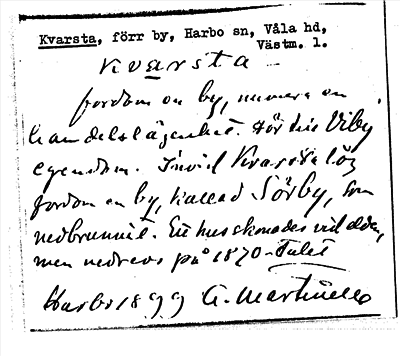 Kvarsta, förr by, Harbo sn, Våla hd,
Västm. l.
Kvarsta
fordom en by, numera en
handelslägenhet. Hör till Viby
egendom. Invid Kvarsta låg
fordom en by, kallad Sörby, som
nedbrunnit. Ett hus skonades vid elden,
men nedrevs på 1870-talet
Harbo 1899 G. Martinell